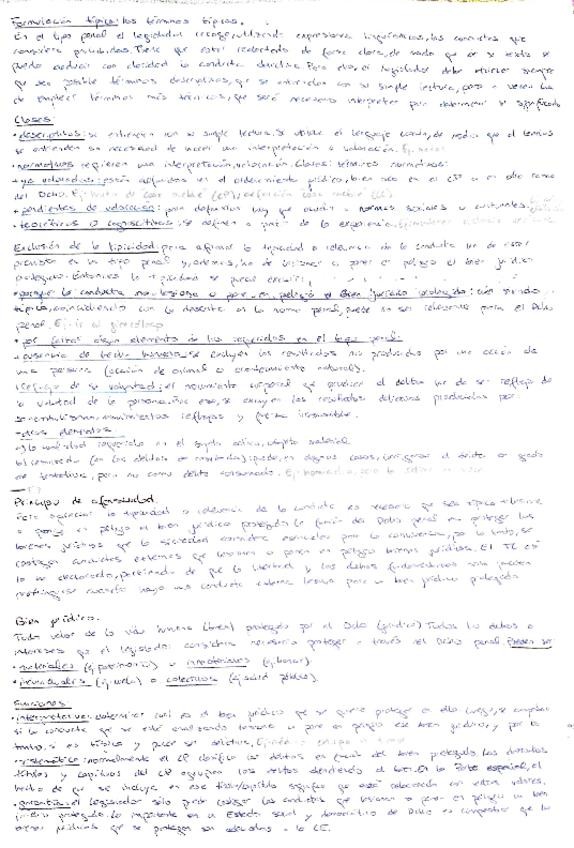 Formulación típica: los términos típicos.
En el tipo penal el legislador recoge, utilizando expresiones lingüísticas, las conductas que
considera prohibidas. Tiene que estar redactado de forma clara, de modo que de su texto se
pueda deducir con claridad la conducta descrita. Para ello, el legislador debe utilizar siempre
que sea posible términos descriptivos, que se entiendan con su simple lectura, pero a veces ha
de emplear términos más técnicos, que será necesario interpretar para determinar su significado
Clases:
• descriptivos: se entienden con su simple lectura. Se utiliza el lenguaje común, de modo que el término
se entiende sin necesidad de hacer una interpretación o valoración. Ej.
• normativos: requieren una interpretación, valoración. Clases: términos normativos:
• ya valorados: están definidos en el ordenamiento jurídico, bien sea en el CP o en otra rama
del Dcho. Ej:
• pendientes de valoración: para definirlos hay que acudir a normas sociales o culturales.
• teoréticos o cognoscitivos: se definen a partir de la experiencia.
Exclusión de la tipicidad: para afirmar la tipicidad o relevancia de la conducta ha de estar
prevista en un tipo penal y, además, ha de lesionar o poner en peligro el bien jurídico
protegido. Entonces la tipicidad se puede excluir:
• porque la conducta no lesiona o pone en peligro el Bien jurídico protegido: aún siendo
típica, coincidiendo con lo descrito en la norma penal, puede no ser relevante para el Dcho
penal. Ej:
• por faltar algún elemento de los requeridos en el tipo penal:
• ausencia de hecho humano: se excluyen los resultados no producidos por una acción de
una persona (acción de animal o acontecimiento natural).
• reflejo de su voluntad: el movimiento corporal que produce el delito ha de ser reflejo de
la voluntad de la persona. Por eso, se excluyen los resultados delictivos producidos por
sonambulismo, movimientos reflejos y fuerza irresistible.
• otros elementos
a) la cualidad requerida en el sujeto activo, objeto material
b) el resultado (en los delitos de resultado): puede, en algunos casos, castigarse el delito en grado
de tentativa, pero no como delito consumado. Ej: homicidio,
Principio de ofensividad.
Para apreciar la tipicidad o relevancia de la conducta es necesario que sea típica y lesione
o ponga en peligro el bien jurídico protegido. La función del Dcho penal es proteger los
bienes jurídicos que la sociedad considera esenciales para la convivencia, por lo tanto, se
castigan conductas externas que lesionan o ponen en peligro bienes jurídicos. El TC así
lo ha declarado, partiendo de que la libertad y los dchos fundamentales solo pueden
restringirse cuando haya una conducta externa lesiva para un bien jurídico protegido
Bien jurídico.
Todo valor de la vida humana (bien) protegido por el Dcho (jurídico). Todos los dchos o
intereses que el legislador considera necesario proteger a través del Dcho penal. Pueden ser
• materiales (ej. patrimonio) o inmateriales (ej. honor)
• individuales (ej. vida) o colectivos (ej. salud pública).
Funciones
• interpretativa: determinar cuál es el bien jurídico que se quiere proteger en ello. Luego, se comprueba
si la conducta que se está analizando lesiona o pone en peligro ese bien jurídico, y por lo
tanto, si es típica y puede ser delictiva.
• sistemática: normalmente el CP clasifica los delitos en función del bien protegido. Los distintos
títulos y capítulos del CP agrupan los delitos atendiendo al bien. En la Parte especial, el
hecho de que se incluya en ese título/capítulo significa que está relacionado con estos valores.
• garantía: el legislador sólo puede castigar las conductas que lesionan o ponen en peligro un bien
jurídico protegido. Lo importante en un Estado social y democrático de Dcho es comprobar que los
bienes jurídicos que se protegen son adecuados a la CE.